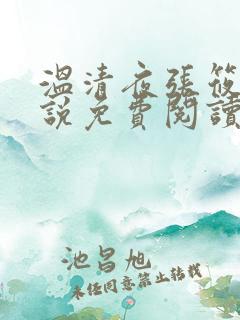 溫清夜張筱
說免費閱讀
池昌旭
未经同意禁止转载